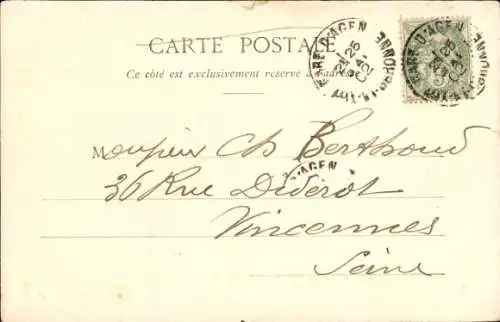 CARTE POSTALE
Ce côté est exclusivement réservé à l'adresse
D'AGEN
25
02
GARONNE
D'AGEN
25
02
Monsieur Ch Berthoud
D'AGEN
36 Rue Diderot
Vincennes
Seine